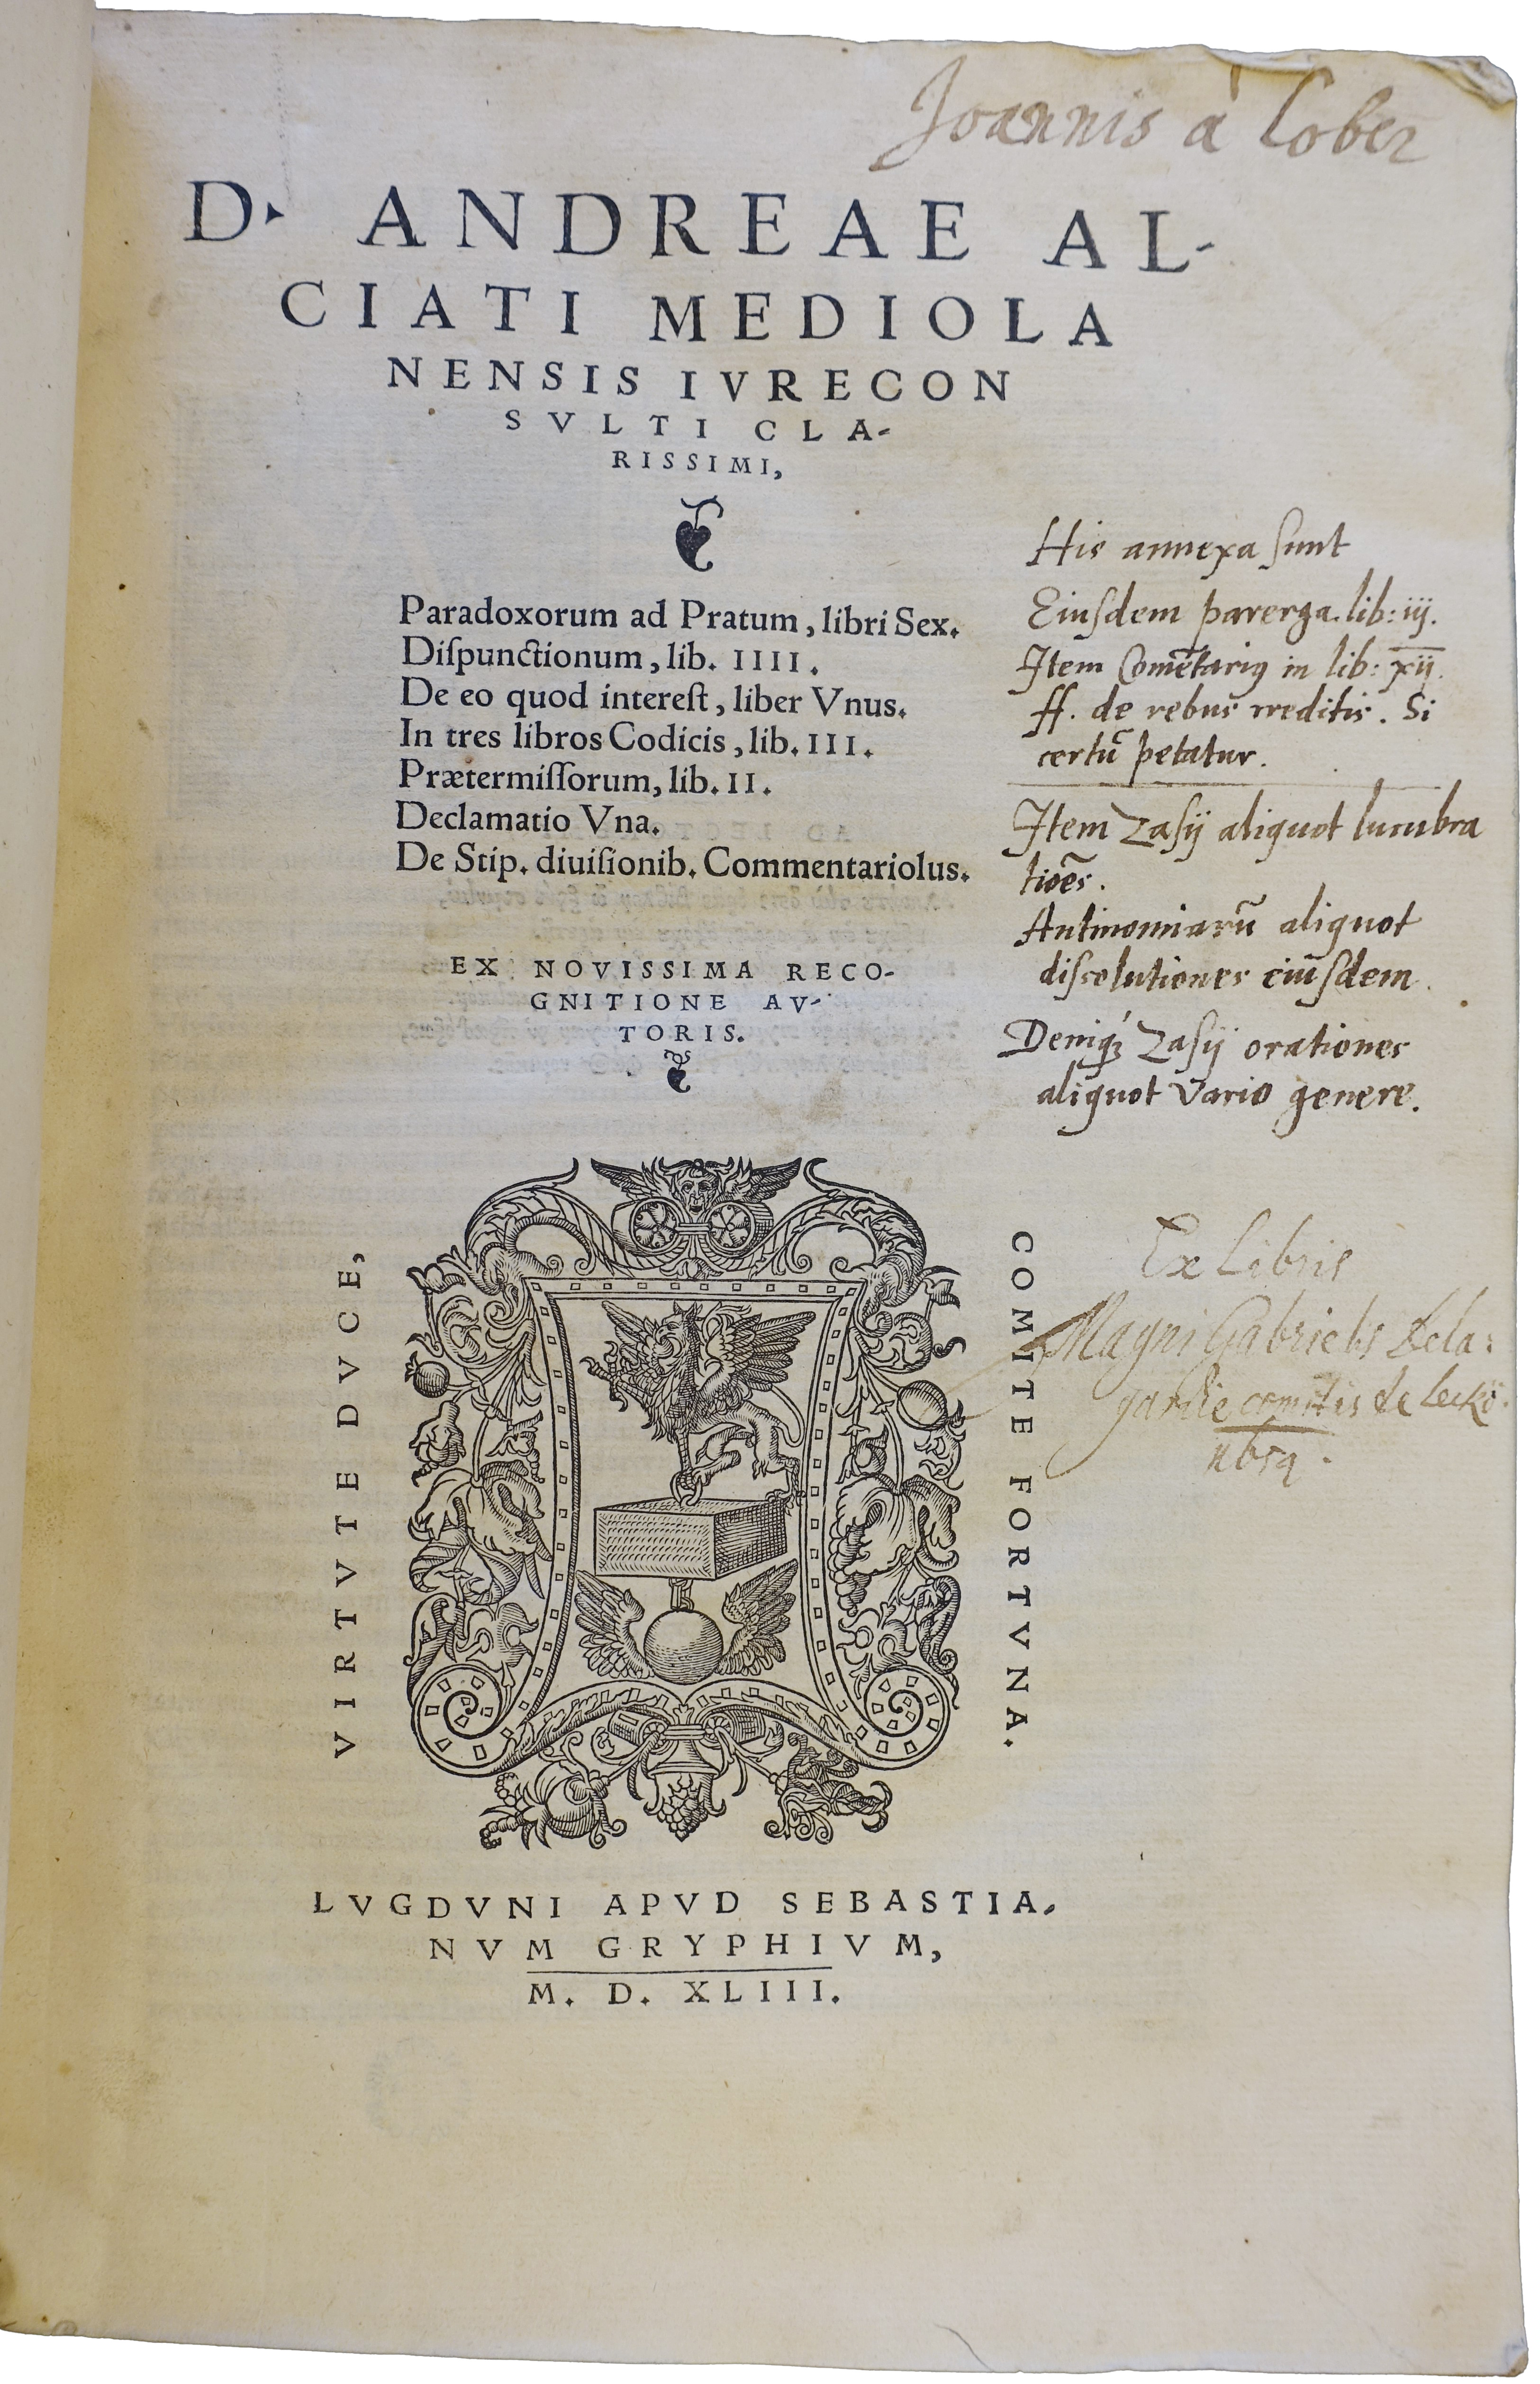 Joannis à Cober
D. ANDREAE AL-
CIATI MEDIOLA
NENSIS IVRECON
SVLTI CLA-
RISSIMI,
Paradoxorum ad Pratum, libri Sex.
Diſpunctionum, lib. IIII.
De eo quod intereſt, liber Vnus.
In tres libros Codicis, lib. III.
Prætermiſſorum, lib. II.
Declamatio Vna.
De Stip. diuiſionib. Commentariolus.
EX NOVISSIMA RECO-
GNITIONE AV-
TORIS.
His annexa ſunt
Eiuſdem parerga. lib: iij.
Item Com̄etariꝰ in lib: xij.
ff. de rebus creditis. Si
certū petatur.
Item Zaſij aliquot lucubra
tiōes.
Antinomiarū aliquot
diſſolutiones eiuſdem.
Deniqꝫ Zaſij orationes
aliquot vario genere.
VIRTVTE DVCE,
COMITE FORTVNA.
Ex Libris
Magni Gabrielis Dela:
gardie comitis de Leckö
LVGDVNI APVD SEBASTIA-
NVM GRYPHIVM,
M. D. XLIII.